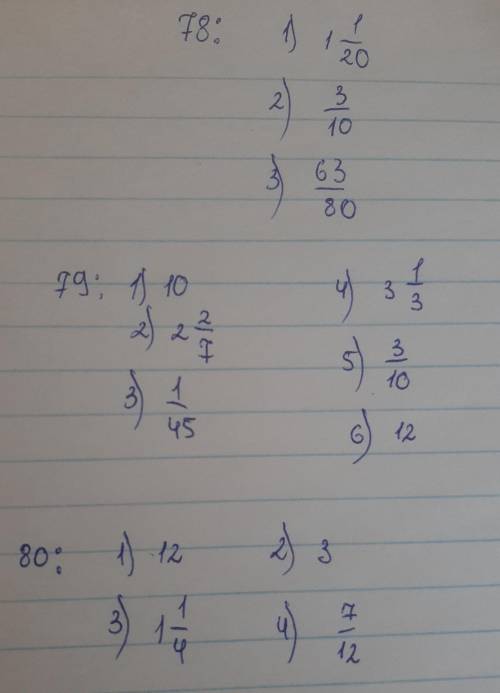 78: 1) 1 1/20
2) 3/10
3) 63/80
79: 1) 10 4) 3 1/3
2) 2 2/7 5) 3/10
3) 1/45 6) 12
80: 1) 12 2) 3
3) 1 1/4 4) 7/12